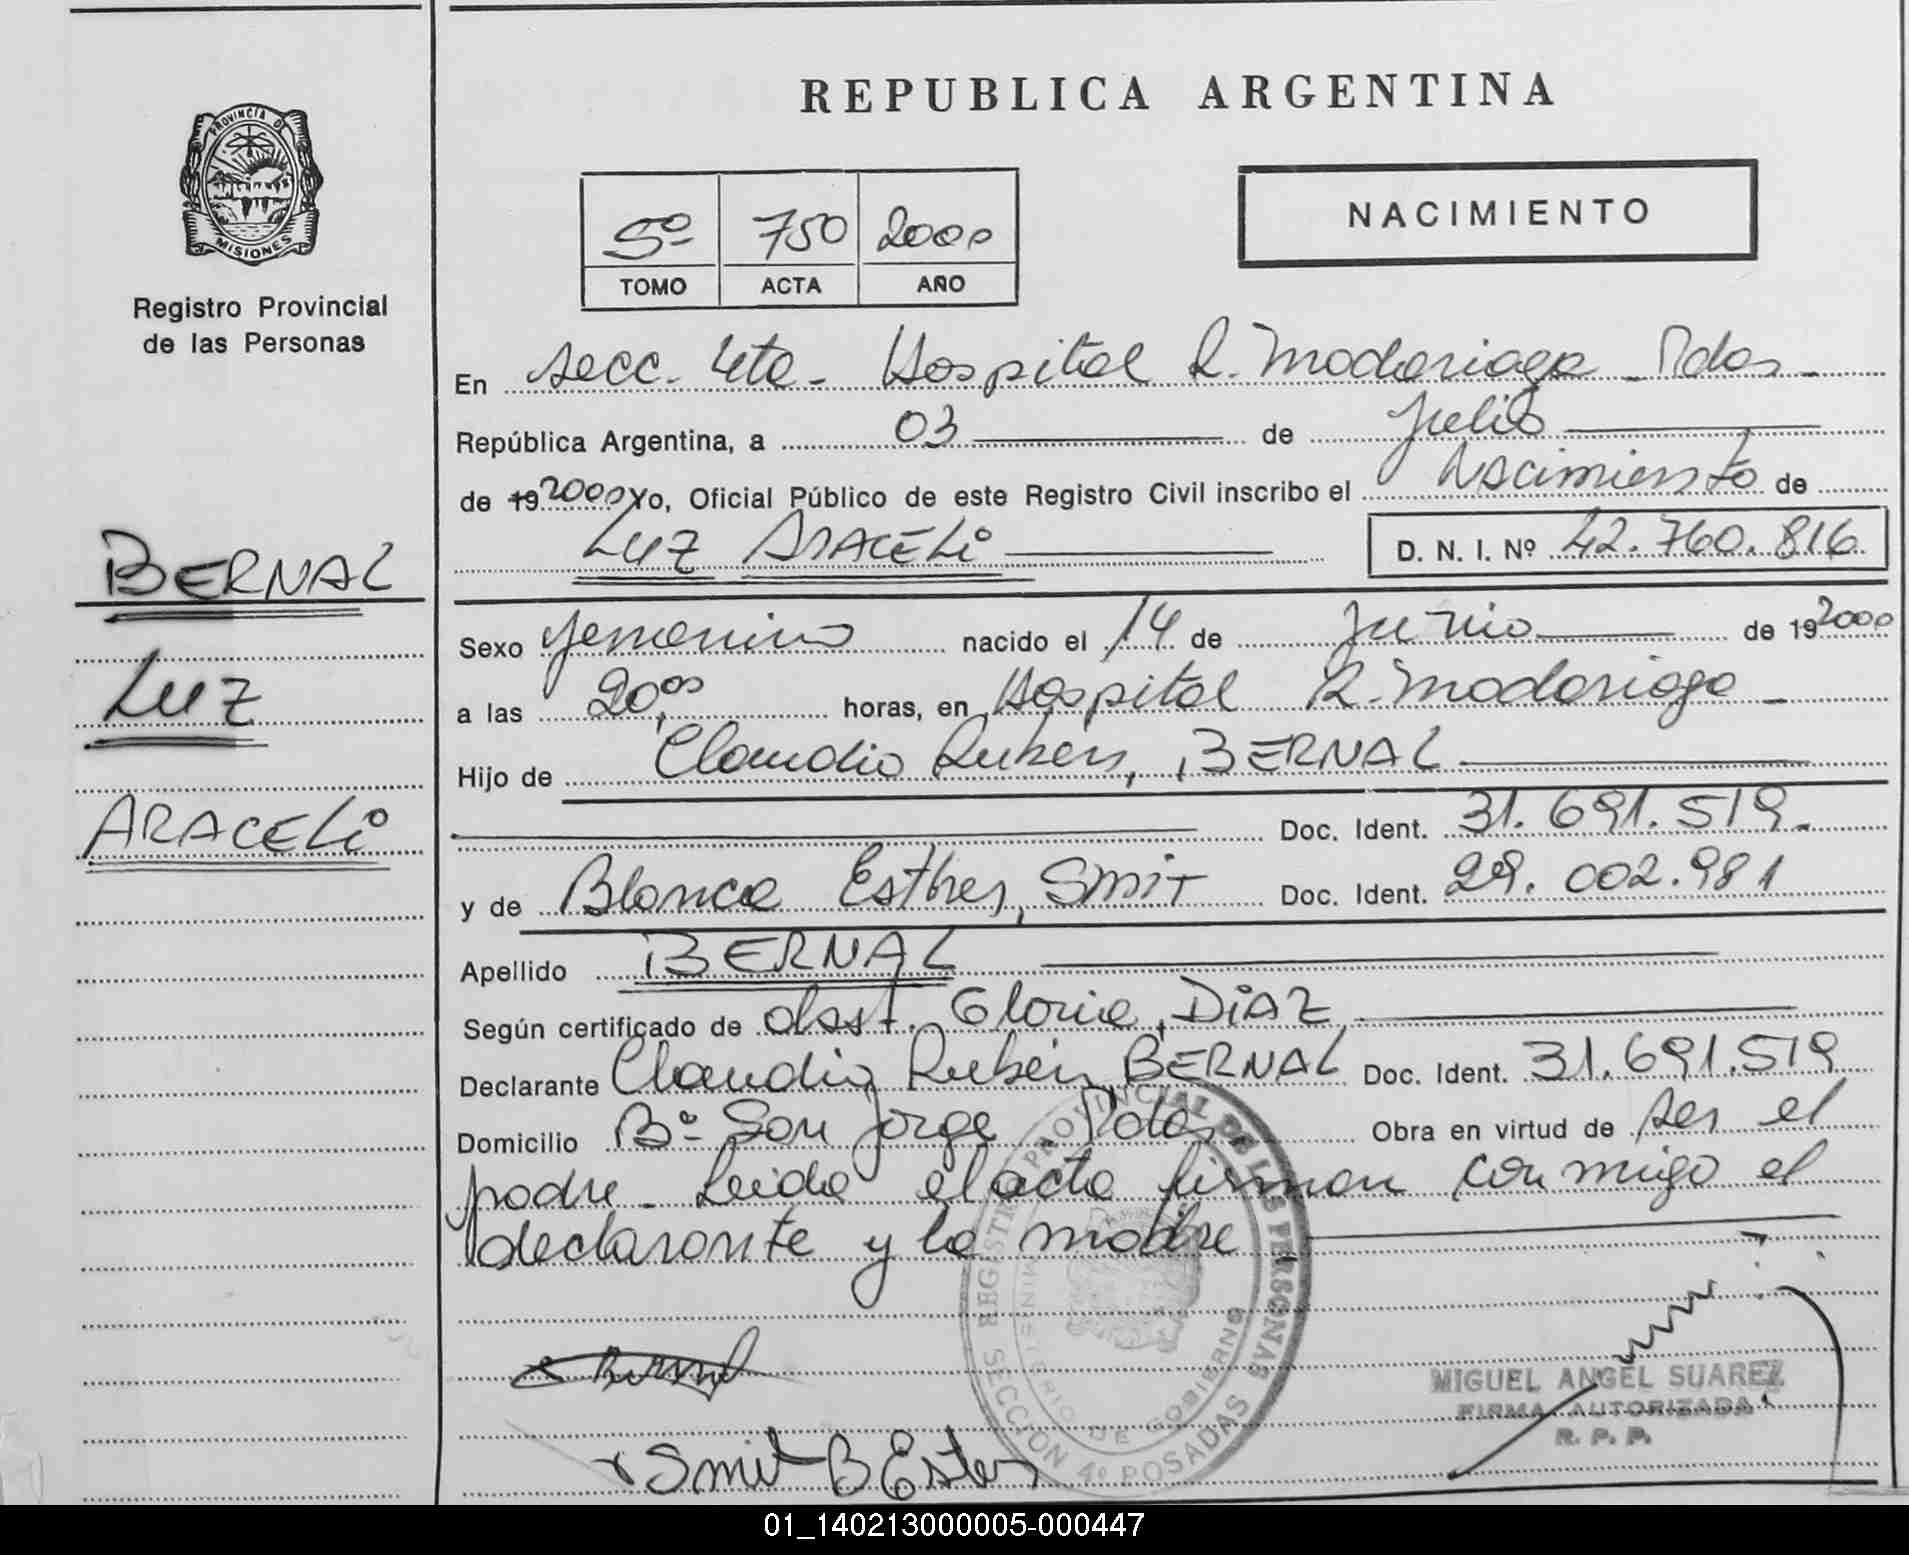 REPUBLICA ARGENTINA
PROVINCIA DE
MISIONES
Registro Provincial
de las Personas
5º 750 2000
TOMO ACTA AÑO
NACIMIENTO
En secc. 4ta. Hospital R. Madariaga - Pdas -
República Argentina, a 03 de Julio
de 19 2000 Yo, Oficial Público de este Registro Civil inscribo el Nacimiento de
LUZ ARACELi D. N. I. Nº 42.760.816
BERNAL
LUZ
ARACELi
Sexo femenino nacido el 14 de Junio de 19 2000
a las 20,00 horas, en Hospital R. Madariaga -
Hijo de Claudio Rubén, BERNAL
Doc. Ident. 31.691.519.
y de Blanca Esther, SMiT Doc. Ident. 29.002.981
Apellido BERNAL
Según certificado de obst. Gloria, DiAZ
Declarante Claudio Rubén BERNAL Doc. Ident. 31.691.519
Domicilio Bº San Jorge Pdas Obra en virtud de ser el
padre - Leida el acta firman conmigo el
declarante y la madre
REGISTRO PROVINCIAL DE LAS PERSONAS
MINISTERIO DE GOBIERNO
SECCION 4º POSADAS
Bernal
Smit B Ester
MIGUEL ANGEL SUAREZ
FIRMA AUTORIZADA
R. P. P.
01_140213000005-000447